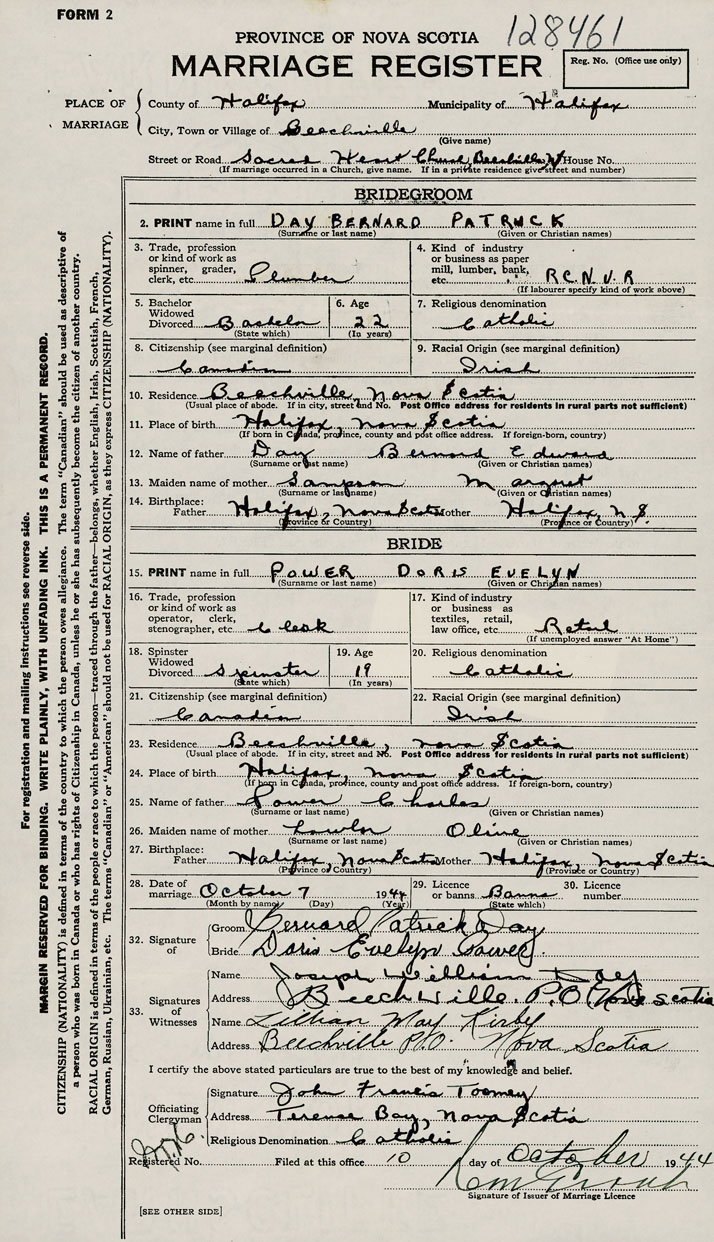 FORM 2
128461
PROVINCE OF NOVA SCOTIA
MARRIAGE REGISTER
Reg. No. (Office use only)
PLACE OF MARRIAGE
County of Halifax Municipality of Halifax
City, Town or Village of Beechville
(Give name)
Street or Road Sacred Heart Church, Beechville House No.
(If marriage occurred in a Church, give name. If in a private residence give street and number)
BRIDEGROOM
2. PRINT name in full DAY BERNARD PATRUCK
(Surname or last name) (Given or Christian names)
3. Trade, profession or kind of work as spinner, grader, clerk, etc. Plumber
4. Kind of industry or business as paper mill, lumber, bank, etc. R.C.N.V.R
(If labourer specify kind of work above)
5. Bachelor Widowed Divorced Bachelor
(State which)
6. Age 22
(In years)
7. Religious denomination
Catholic
8. Citizenship (see marginal definition)
Canadian
9. Racial Origin (see marginal definition)
Irish
10. Residence Beechville, Nova Scotia
(Usual place of abode. If in city, street and No. Post Office address for residents in rural parts not sufficient)
11. Place of birth Halifax, Nova Scotia
(If born in Canada, province, county and post office address. If foreign-born, country)
12. Name of father Day Bernard Edward
(Surname or last name) (Given or Christian names)
13. Maiden name of mother Sampson Margaret
(Surname or last name) (Given or Christian names)
14. Birthplace: Father Halifax, Nova Scotia Mother Halifax, N S.
(Province or Country) (Province or Country)
BRIDE
15. PRINT name in full POWER DORIS EVELYN
(Surname or last name) (Given or Christian names)
16. Trade, profession or kind of work as operator, clerk, stenographer, etc. Clerk
17. Kind of industry or business as textiles, retail, law office, etc. Retail
(If unemployed answer "At Home")
18. Spinster Widowed Divorced Spinster
(State which)
19. Age 19
(In years)
20. Religious denomination
Catholic
21. Citizenship (see marginal definition)
Canadian
22. Racial Origin (see marginal definition)
Irish
23. Residence Beechville, Nova Scotia
(Usual place of abode. If in city, street and No. Post Office address for residents in rural parts not sufficient)
24. Place of birth Halifax, Nova Scotia
(If born in Canada, province, county and post office address. If foreign-born, country)
25. Name of father Power Charles
(Surname or last name) (Given or Christian names)
26. Maiden name of mother Lawlor Olive
(Surname or last name) (Given or Christian names)
27. Birthplace: Father Halifax, Nova Scotia Mother Halifax, Nova Scotia
(Province or Country) (Province or Country)
28. Date of marriage October 7 1944
(Month by name) (Day) (Year)
29. Licence or banns Banns
(State which)
30. Licence number
32. Signature of
Groom Bernard Patrick Day
Bride Doris Evelyn Power
33. Signatures of Witnesses
Name Joseph William Day
Address Beechville. P.O. Nova Scotia
Name Lillian May Kirby
Address Beechville P.O. Nova Scotia
I certify the above stated particulars are true to the best of my knowledge and belief.
Officiating Clergyman
Signature John Francis Toomey
Address Terence Bay, Nova Scotia
Religious Denomination Catholic
Registered No. Filed at this office 10 day of October 1944
Signature of Issuer of Marriage Licence
[SEE OTHER SIDE]
For registration and mailing instructions see reverse side.
MARGIN RESERVED FOR BINDING. WRITE PLAINLY, WITH UNFADING INK. THIS IS A PERMANENT RECORD.
CITIZENSHIP (NATIONALITY) is defined in terms of the country to which the person owes allegiance. The term "Canadian" should be used as descriptive of
a person who was born in Canada or who has rights of Citizenship in Canada, unless he or she has subsequently become the citizen of another country.
RACIAL ORIGIN is defined in terms of the people or race to which the person—traced through the father—belongs, whether English, Irish, Scottish, French,
German, Russian, Ukrainian, etc. The terms "Canadian" or "American" should not be used for RACIAL ORIGIN, as they express CITIZENSHIP (NATIONALITY).